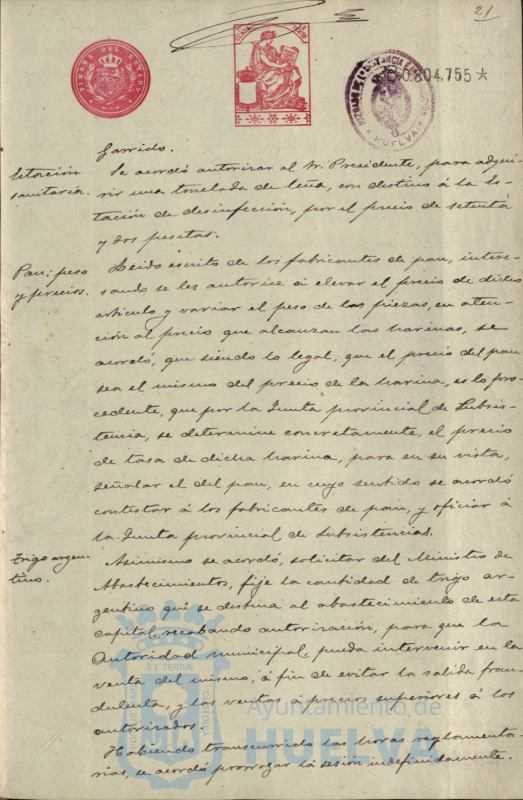 21
TIMBRE DEL ESTADO
0.804,755 *
HUELVA
Garrido.
Situación
sanitaria.
Se acordó autorizar al Sr. Presidente, para adqui-
rir una tonelada de leña, con destino á la Es-
tación de desinfección, por el precio de setenta
y dos pesetas.
Pan; peso
y precios.
Leido escrito de los fabricantes de pan, intere-
sando se les autorice á elevar el precio de dicho
articulo y variar el peso de las piezas, en aten-
ción al precio que alcanzan las harinas, se
acordó, que siendo lo legal, que el precio del pan
sea el mismo del precio de la harina, es lo pro-
cedente, que por la Junta provincial de Subsis-
tencia, se determine concretamente, el precio
de tasa de dicha harina, para en su vista,
señalar el del pan, en cuyo sentido se acordó
contestar á los fabricantes de pan, y oficiar á
la Junta provincial de Subsistencias.
Trigo argen-
tino.
Asimismo se acordó, solicitar del Ministro de
Abastecimientos, fije la cantidad de trigo ar-
gentino que se destina al abastecimiento de esta
capital, recabando autorización, para que la
Autoridad municipal, pueda intervenir en la
venta del mismo, á fin de evitar la salida frau-
dulenta, y las ventas á precios superiores á los
autorizados.
Habiendo transcurrido las horas reglamenta-
rias, se acordó prorrogar la sesión indefinidamente.
ET TERRA
Ayuntamiento de
HUELVA